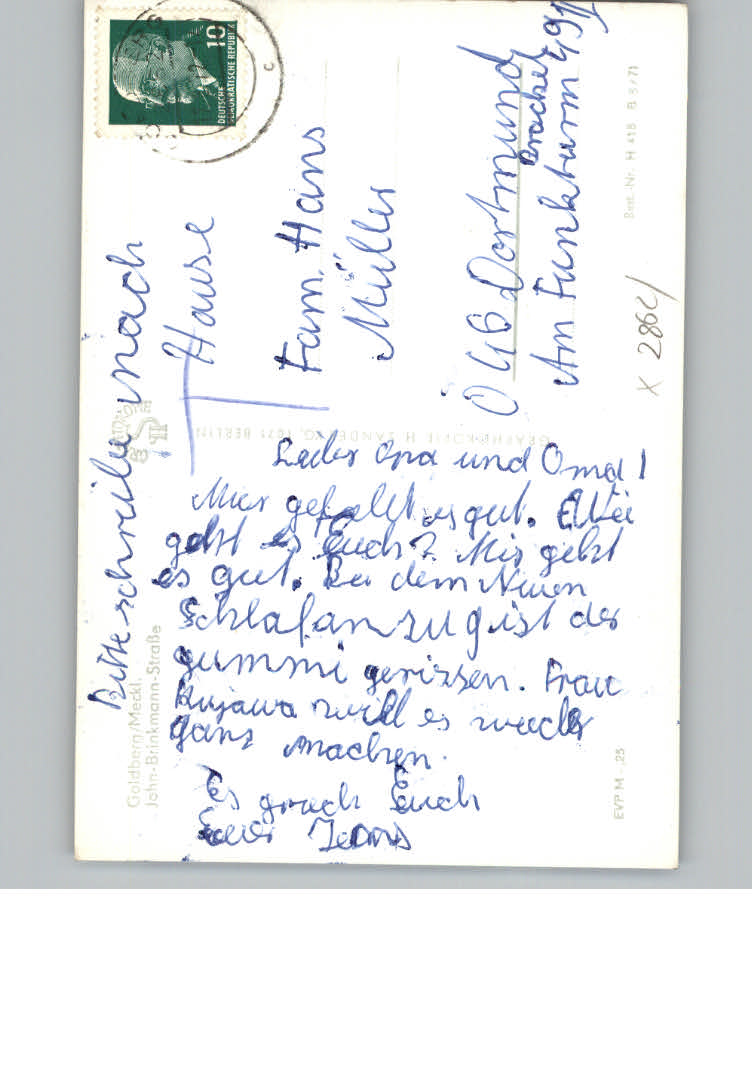 Bitte schreibe nach
Hause
10
DEUTSCHE
DEMOKRATISCHE REPUBLIK
Fam. Hans
Müller
46 Dortmund
Brackel
Am Funkturm
Best.-Nr. H 418 B 5/71
X 2862/
GRAPHOKOPIE H. SANDER KG, 1071 BERLIN
Goldberg/Meckl.
John-Brinkmann-Straße
Lieber Opa und Oma!
Mier gefallt es gut. Wie
geht es Euch? Mir geht
es gut. Bei dem Neuen
Schlafanzug ist der
gummi gerissen. Frau
Kujawa will es wieder
ganz machen.
Es Euch
Euer Jens
EVP M -,25